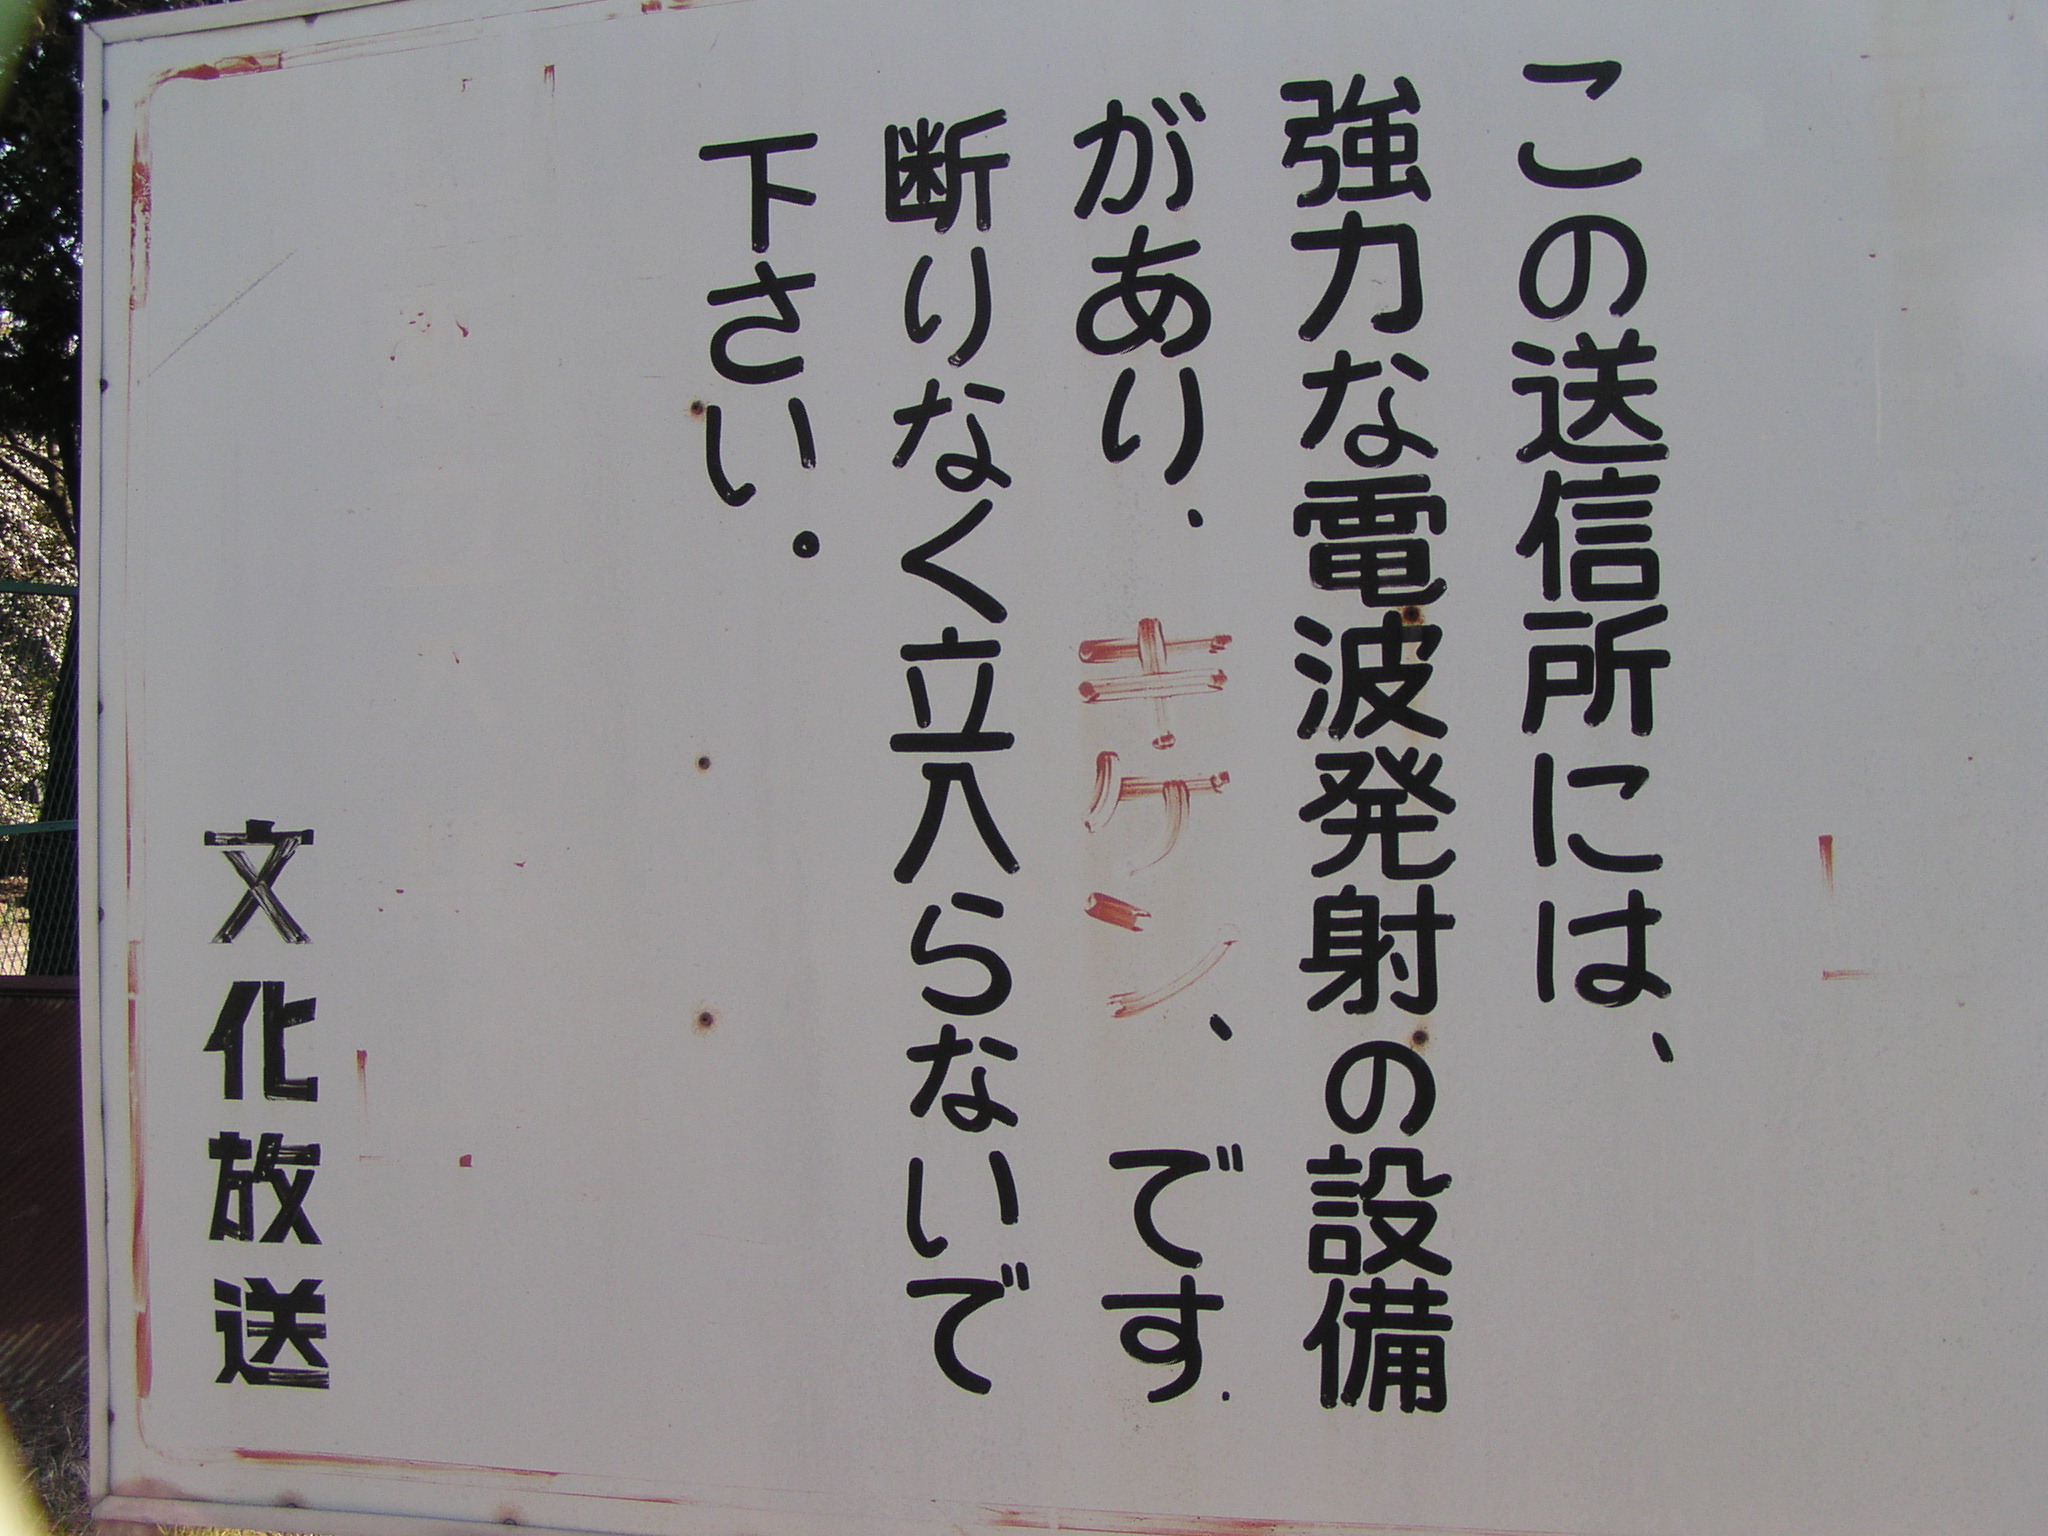 この送信所には、
強力な電波発射の設備
があり、キケン、です.
断りなく立入らないで
下さい.
文化放送